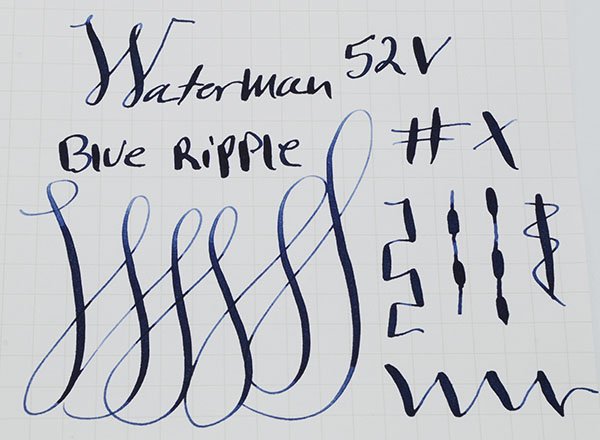 Waterman 52V
Blue Ripple
# X